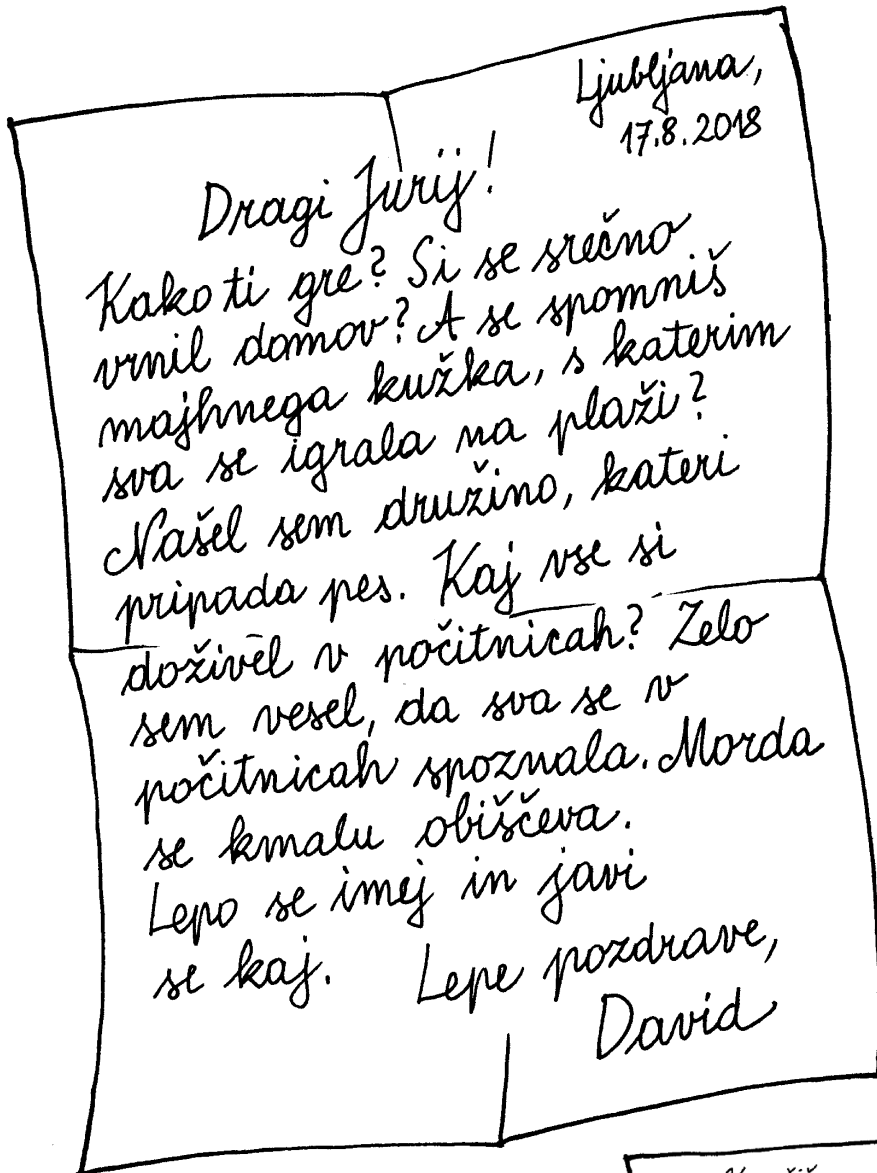 Ljubljana,
17.8.2018
Dragi Jurij!
Kako ti gre? Si se srečno
vrnil domov? A se spomniš
majhnega kužka, s katerim
sva se igrala na plaži?
Našel sem družino, kateri
pripada pes. Kaj vse si
doživel v počitnicah? Zelo
sem vesel, da sva se v
počitnicah spoznala. Morda
se kmalu obiščeva.
Lepo se imej in javi
se kaj. Lepe pozdrave,
David